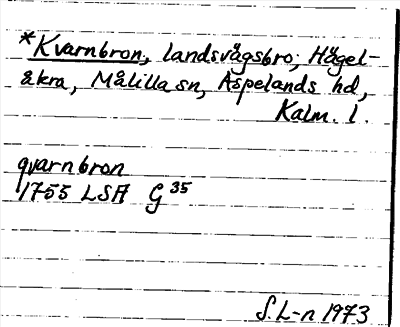 *Kvarnbron, landsvägsbro, Hägel-
åkra, Målilla sn, Aspelands hd,
Kalm. l.
qvarnbron
1755 LSA G 35
S. L-n 1973